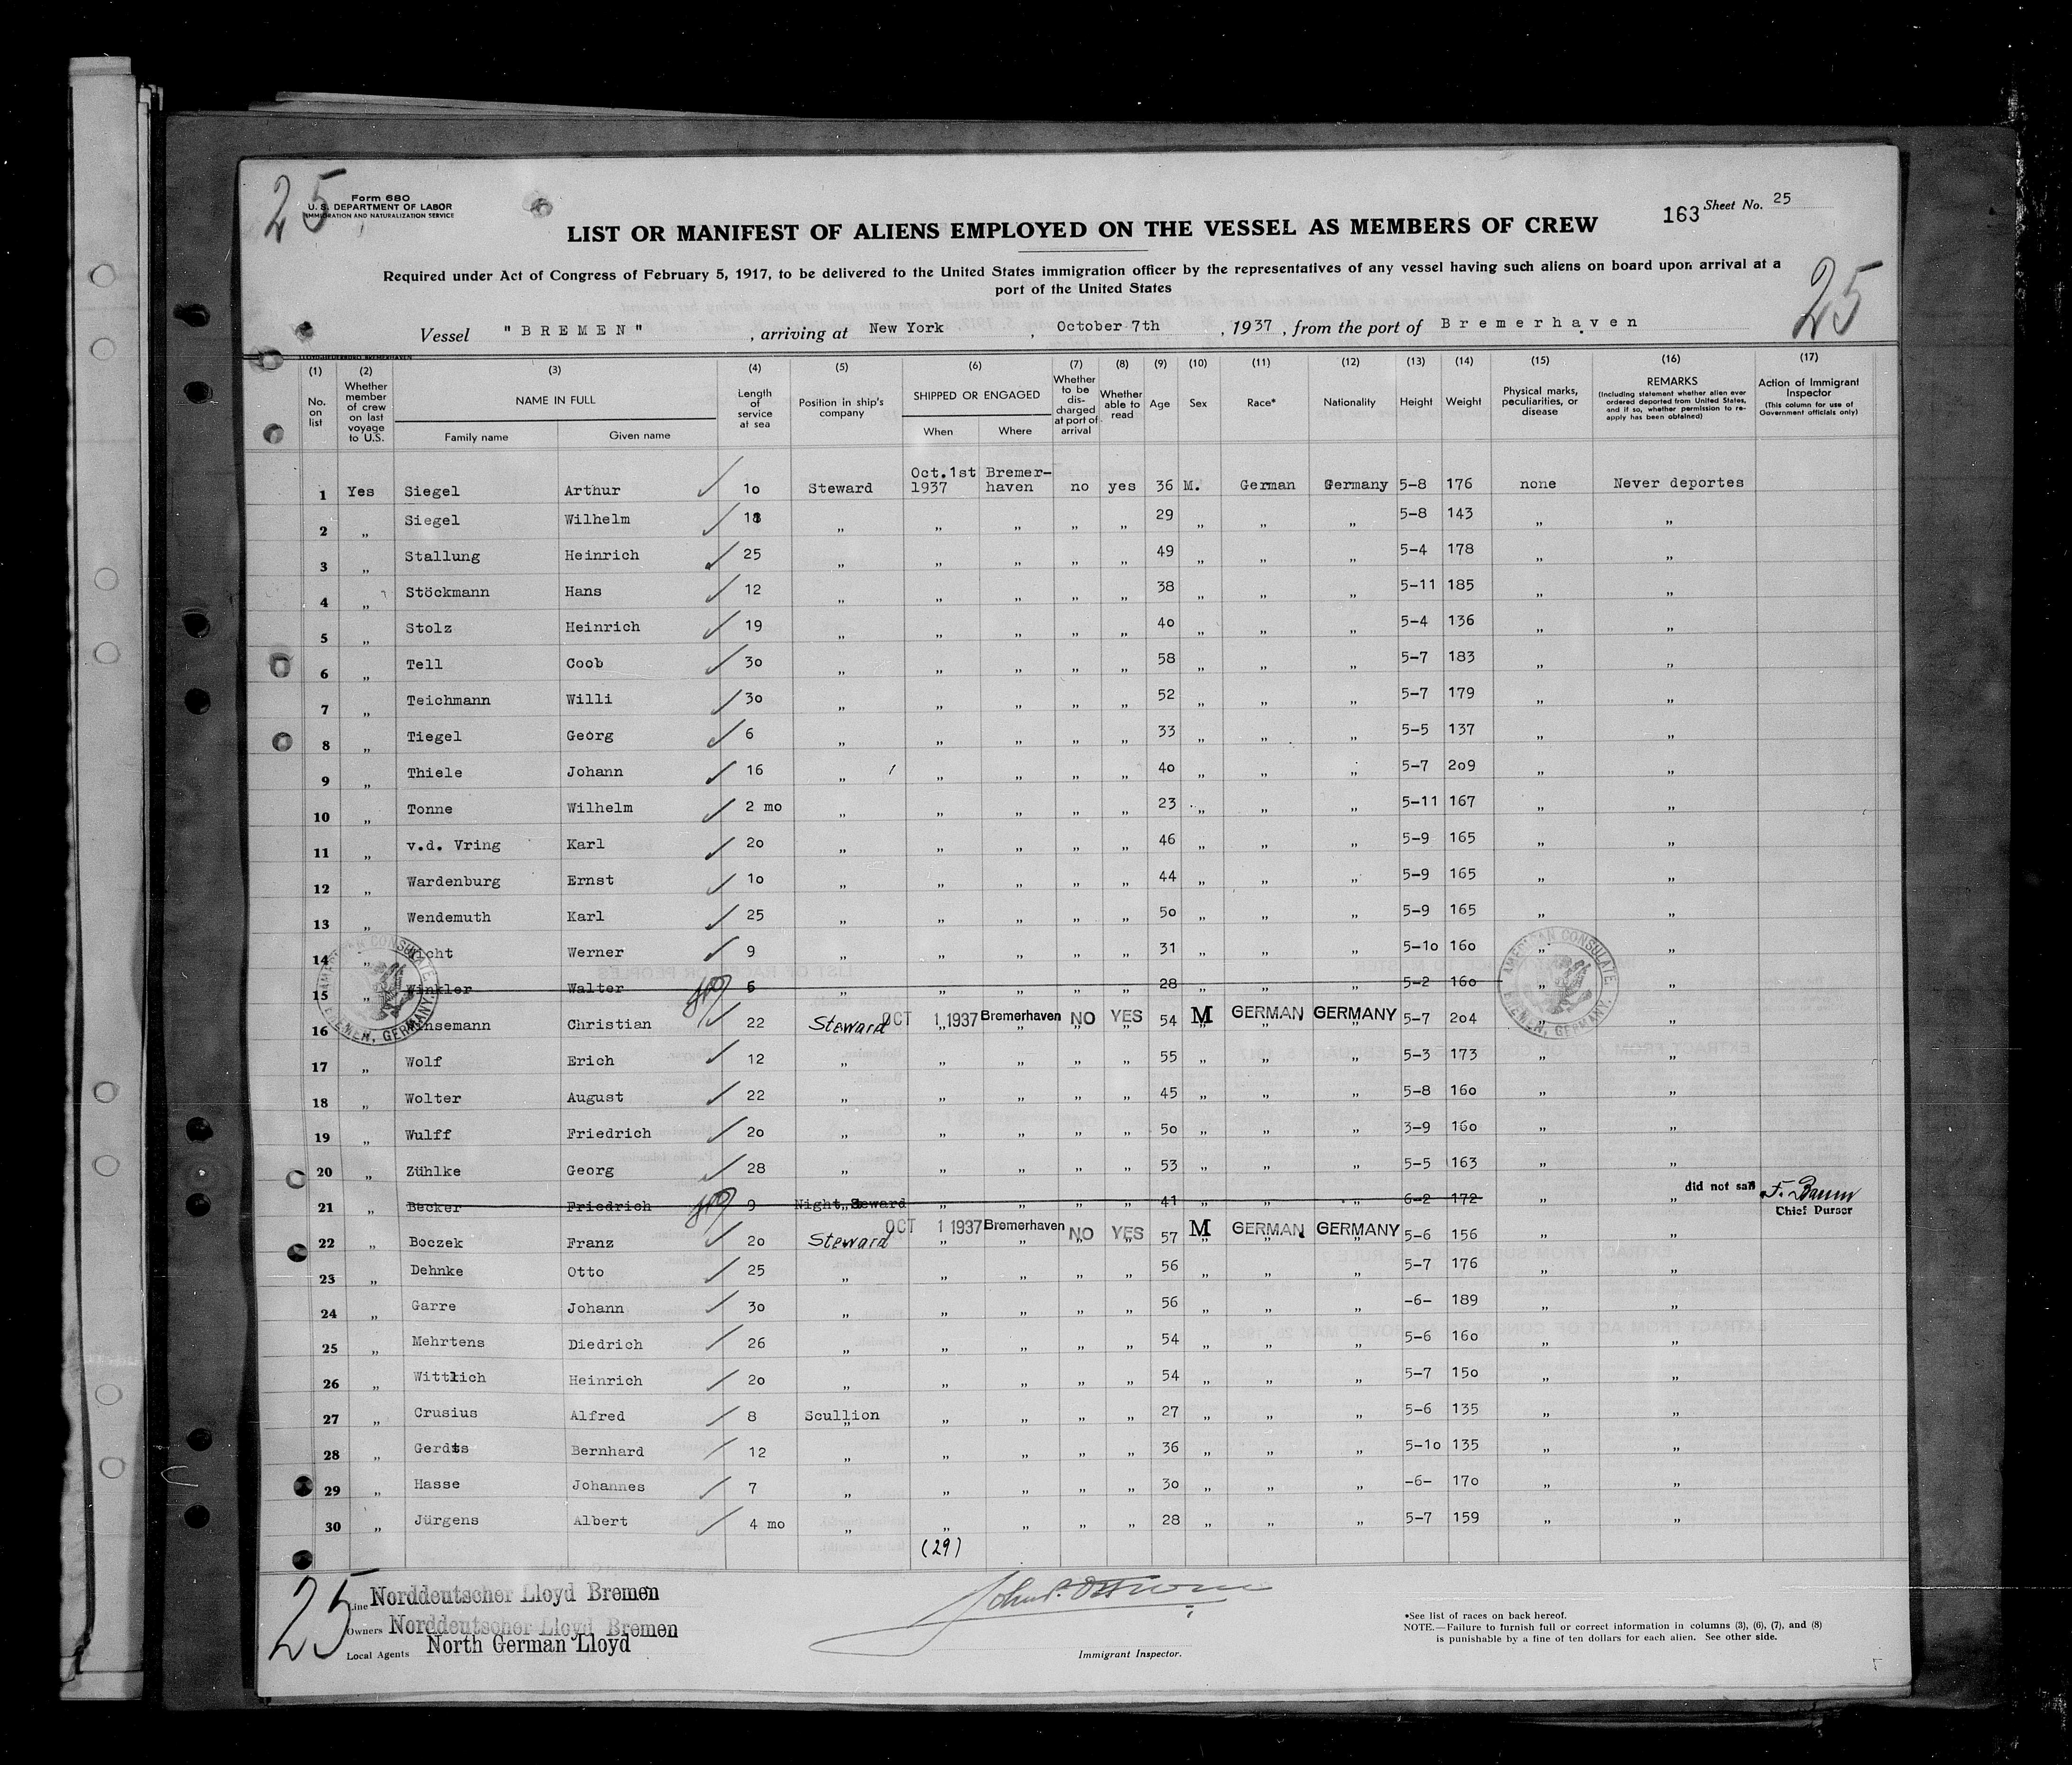 25
Form 680
U. S. DEPARTMENT OF LABOR
IMMIGRATION AND NATURALIZATION SERVICE
163 Sheet No. 25
LIST OR MANIFEST OF ALIENS EMPLOYED ON THE VESSEL AS MEMBERS OF CREW
Required under Act of Congress of February 5, 1917, to be delivered to the United States immigration officer by the representatives of any vessel having such aliens on board upon arrival at a
port of the United States
25
Vessel "BREMEN" , arriving at New York , October 7th , 1937 , from the port of Bremerhaven
(1) (2) (3) (4) (5) (6) (7) (8) (9) (10) (11) (12) (13) (14) (15) (16) (17)
No. on list
Whether member of crew on last voyage to U.S.
NAME IN FULL
Family name Given name
Length of service at sea
Position in ship's company
SHIPPED OR ENGAGED
When Where
Whether to be discharged at port of arrival
Whether able to read
Age
Sex
Race*
Nationality
Height
Weight
Physical marks, peculiarities, or disease
REMARKS
(Including statement whether alien ever ordered deported from United States, and if so, whether permission to re-apply has been obtained)
Action of Immigrant Inspector
(This column for use of Government officials only)
1 Yes Siegel Arthur 1o Steward Oct.1st 1937 Bremer-haven no yes 36 M. German Germany 5-8 176 none Never deportes
2 „ Siegel Wilhelm 18 „ „ „ „ „ 29 „ „ „ 5-8 143 „ „
3 „ Stallung Heinrich 25 „ „ „ „ „ 49 „ „ „ 5-4 178 „ „
4 „ Stöckmann Hans 12 „ „ „ „ „ 38 „ „ „ 5-11 185 „ „
5 „ Stolz Heinrich 19 „ „ „ „ „ 4o „ „ „ 5-4 136 „ „
6 „ Tell Coob 3o „ „ „ „ „ 58 „ „ „ 5-7 183 „ „
7 „ Teichmann Willi 3o „ „ „ „ „ 52 „ „ „ 5-7 179 „ „
8 „ Tiegel Georg 6 „ „ „ „ „ 33 „ „ „ 5-5 137 „ „
9 „ Thiele Johann 16 „ „ „ „ „ 4o „ „ „ 5-7 2o9 „ „
10 „ Tonne Wilhelm 2 mo „ „ „ „ „ 23 „ „ „ 5-11 167 „ „
11 „ v.d. Vring Karl 2o „ „ „ „ „ 46 „ „ „ 5-9 165 „ „
12 „ Wardenburg Ernst 1o „ „ „ „ „ 44 „ „ „ 5-9 165 „ „
13 „ Wendemuth Karl 25 „ „ „ „ „ 5o „ „ „ 5-9 165 „ „
14 „ Wicht Werner 9 „ „ „ „ „ 31 „ „ „ 5-1o 16o „ „
15 „ Winkler Walter 6 „ „ „ „ „ 28 „ „ „ 5-2 16o „ „
16 „ Christian 22 Steward OCT 1 1937 Bremerhaven NO YES 54 M GERMAN GERMANY 5-7 2o4 „ „
17 „ Wolf Erich 12 „ „ „ „ „ 55 „ „ „ 5-3 173 „ „
18 „ Wolter August 22 „ „ „ „ „ 45 „ „ „ 5-8 16o „ „
19 „ Wulff Friedrich 2o „ „ „ „ „ 5o „ „ „ 3-9 16o „ „
20 „ Zühlke Georg 28 „ „ „ „ „ 53 „ „ „ 5-5 163 „ „
21 „ Becker Friedrich 9 Night Seward „ „ „ „ 41 „ „ „ 6-2 172 „ „ did not sail F. Baum
Chief Purser
22 „ Boczek Franz 2o Steward OCT 1 1937 Bremerhaven NO YES 57 M GERMAN GERMANY 5-6 156 „ „
23 „ Dehnke Otto 25 „ „ „ „ „ 56 „ „ „ 5-7 176 „ „
24 „ Garre Johann 3o „ „ „ „ „ 56 „ „ „ -6- 189 „ „
25 „ Mehrtens Diedrich 26 „ „ „ „ „ 54 „ „ „ 5-6 16o „ „
26 „ Wittlich Heinrich 2o „ „ „ „ „ 54 „ „ „ 5-7 15o „ „
27 „ Crusius Alfred 8 Scullion „ „ „ „ 27 „ „ „ 5-6 135 „ „
28 „ Gerdts Bernhard 12 „ „ „ „ „ 36 „ „ „ 5-1o 135 „ „
29 „ Hasse Johannes 7 „ „ „ „ „ 3o „ „ „ -6- 17o „ „
30 „ Jürgens Albert 4 mo „ „ „ „ „ 28 „ „ „ 5-7 159 „ „
(29)
AMERICAN CONSULATE BREMEN, GERMANY.
AMERICAN CONSULATE BREMEN, GERMANY.
25
Line Norddeutscher Lloyd Bremen
Owners Norddeutscher Lloyd Bremen
Local Agents North German Lloyd
Immigrant Inspector.
*See list of races on back hereof.
NOTE.—Failure to furnish full or correct information in columns (3), (6), (7), and (8)
is punishable by a fine of ten dollars for each alien. See other side.